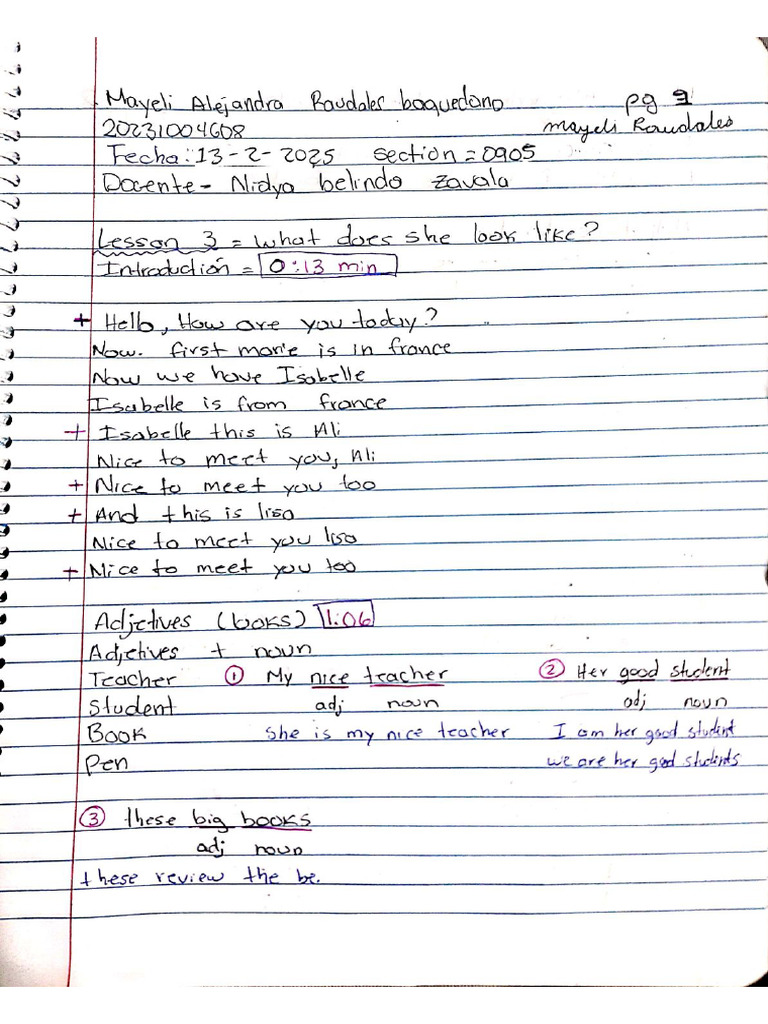 Mayeli Alejandra Raudales baquedano pg 9
20231004608 mayeli Raudales
Fecha: 13-2-2025 section = 0905
Docente - Nidya belindo zavala
Lesson 3 = what does she look like?
Introduction = 0:13 min
+ Hello, How are you today?
Now. first marie is in france
Now we have Isabelle
Isabelle is from france
+ Isabelle this is Ali
Nice to meet you, Ali
+ Nice to meet you too
+ And this is lisa
Nice to meet you lisa
+ Nice to meet you too
Adjetives (books) 1:06
Adjetives + noun
Teacher ① My nice teacher ② Her good student
Student adj noun adj noun
Book she is my nice teacher I am her good student
Pen we are her good students
③ these big books
adj noun
these review the be.